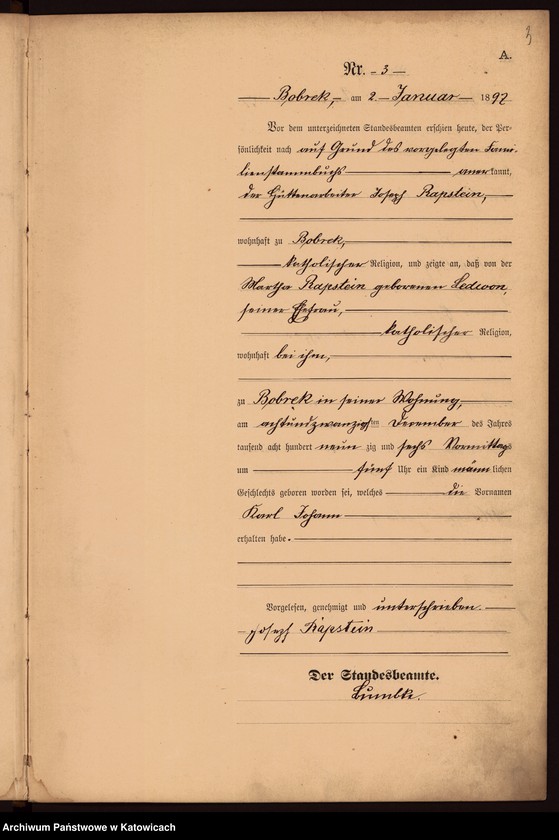 3
A.
Nr. 3
Bobrek, am 2 Januar 1897
Vor dem unterzeichneten Standesbeamten erschien heute, der Per-
sönlichkeit nach auf Grund des vorgelegten Fami-
lienstammbuchs anerkannt,
der Hüttenarbeiter Joseph Rapstein,
wohnhaft zu Bobrek,
katholischer Religion, und zeigte an, daß von der
Martha Rapstein geborenen Ledwon,
seiner Ehefrau,
katholischer Religion,
wohnhaft bei ihm,
zu Bobrek in seiner Wohnung,
am achtundzwanzigsten Dezember des Jahres
tausend acht hundert neunzig und sechs Vormittags
um fünf Uhr ein Kind männlichen
Geschlechts geboren worden sei, welches die Vornamen
Karl Johann
erhalten habe.
Vorgelesen, genehmigt und unterschrieben.
Joseph Rapstein
Der Standesbeamte.
Archiwum Państwowe w Katowicach